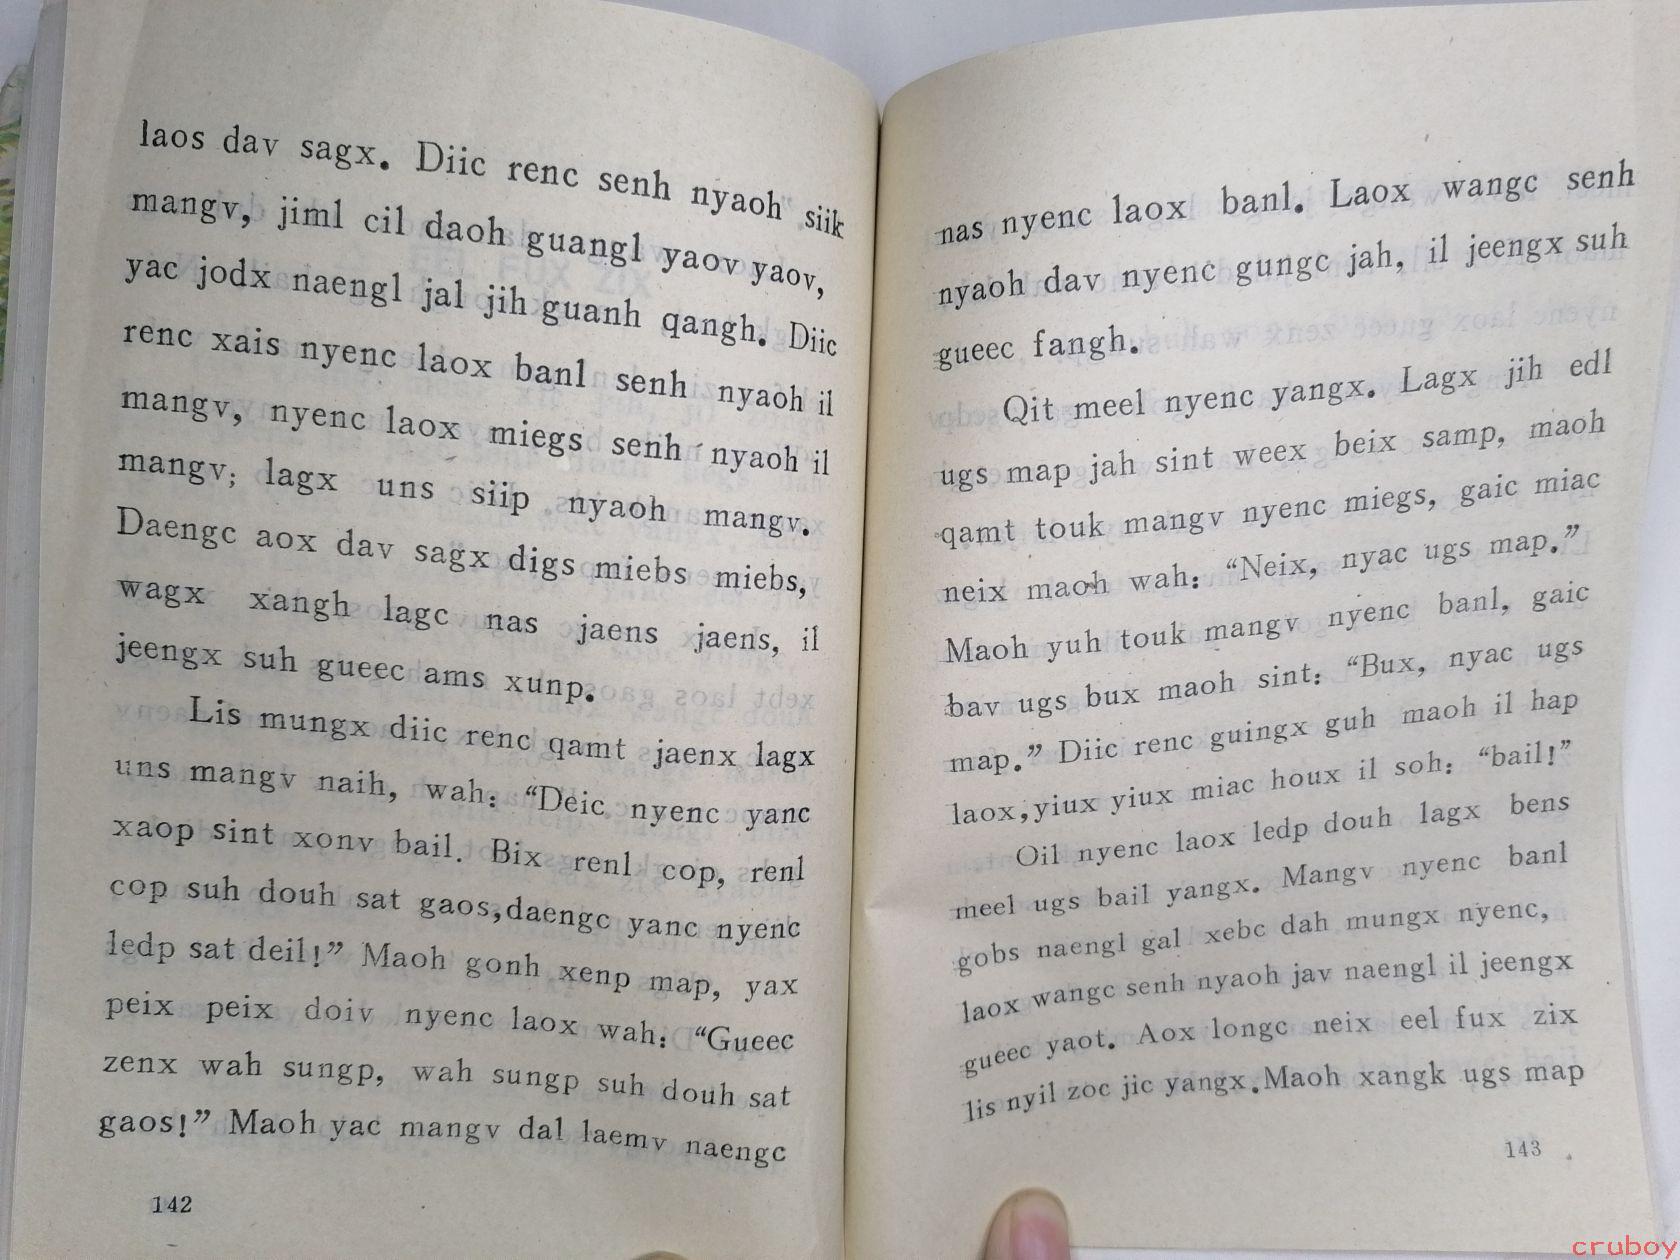 laos dav sagx. Diic renc senh nyaoh siik
mangv, jiml cil daoh guangl yaov yaov,
yac jodx naengl jal jih guanh qangh. Diic
renc xais nyenc laox banl senh nyaoh il
mangv, nyenc laox miegs senh nyaoh il
mangv; lagx uns siip nyaoh mangv.
Daengc aox dav sagx digs miebs miebs,
wagx xangh lagc nas jaens jaens, il
jeengx suh gueec ams xunp.
Lis mungx diic renc qamt jaenx lagx
uns mangv naih, wah: “Deic nyenc yanc
xaop sint xonv bail. Bix renl cop, renl
cop suh douh sat gaos, daengc yanc nyenc
ledp sat deil!” Maoh gonh xenp map, yax
peix peix doiv nyenc laox wah: “Gueec
zenx wah sungp, wah sungp suh douh sat
gaos!” Maoh yac mangv dal laemv naengc
142
nas nyenc laox banl. Laox wangc senh
nyaoh dav nyenc gungc jah, il jeengx suh
gueec fangh.
Qit meel nyenc yangx. Lagx jih edl
ugs map jah sint weex beix samp, maoh
qamt touk mangv nyenc miegs, gaic miac
neix maoh wah: “Neix, nyac ugs map.”
Maoh yuh touk mangv nyenc banl, gaic
bav ugs bux maoh sint: “Bux, nyac ugs
map.” Diic renc guingx guh maoh il hap
laox, yiux yiux miac houx il soh: “bail!”
Oil nyenc laox ledp douh lagx bens
meel ugs bail yangx. Mangv nyenc banl
gobs naengl gal xebc dah mungx nyenc,
laox wangc senh nyaoh jav naengl il jeengx
gueec yaot. Aox longc neix eel fux zix
lis nyil zoc jic yangx. Maoh xangk ugs map
143
cruboy